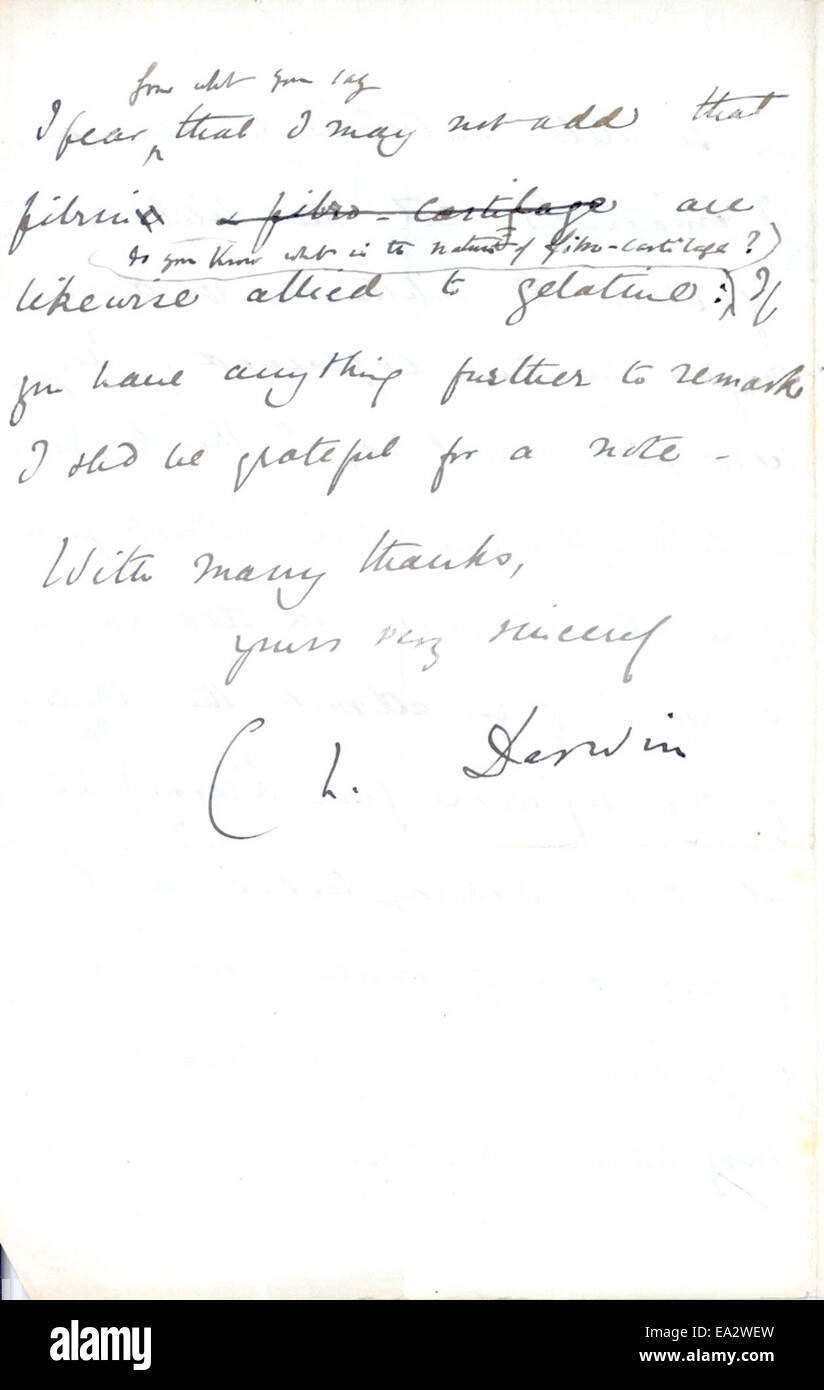 from what you say
I fear, that I may not add that
fibrine & fibro-cartilage are
do you know what is the nature of fibro-cartilage?)
likewise allied to gelatine:) If
you have anything further to remark
I shd be grateful for a note –
With many thanks,
yours very sincerely
Ch. Darwin
alamy stock photo
EA2WEW
www.alamy.com